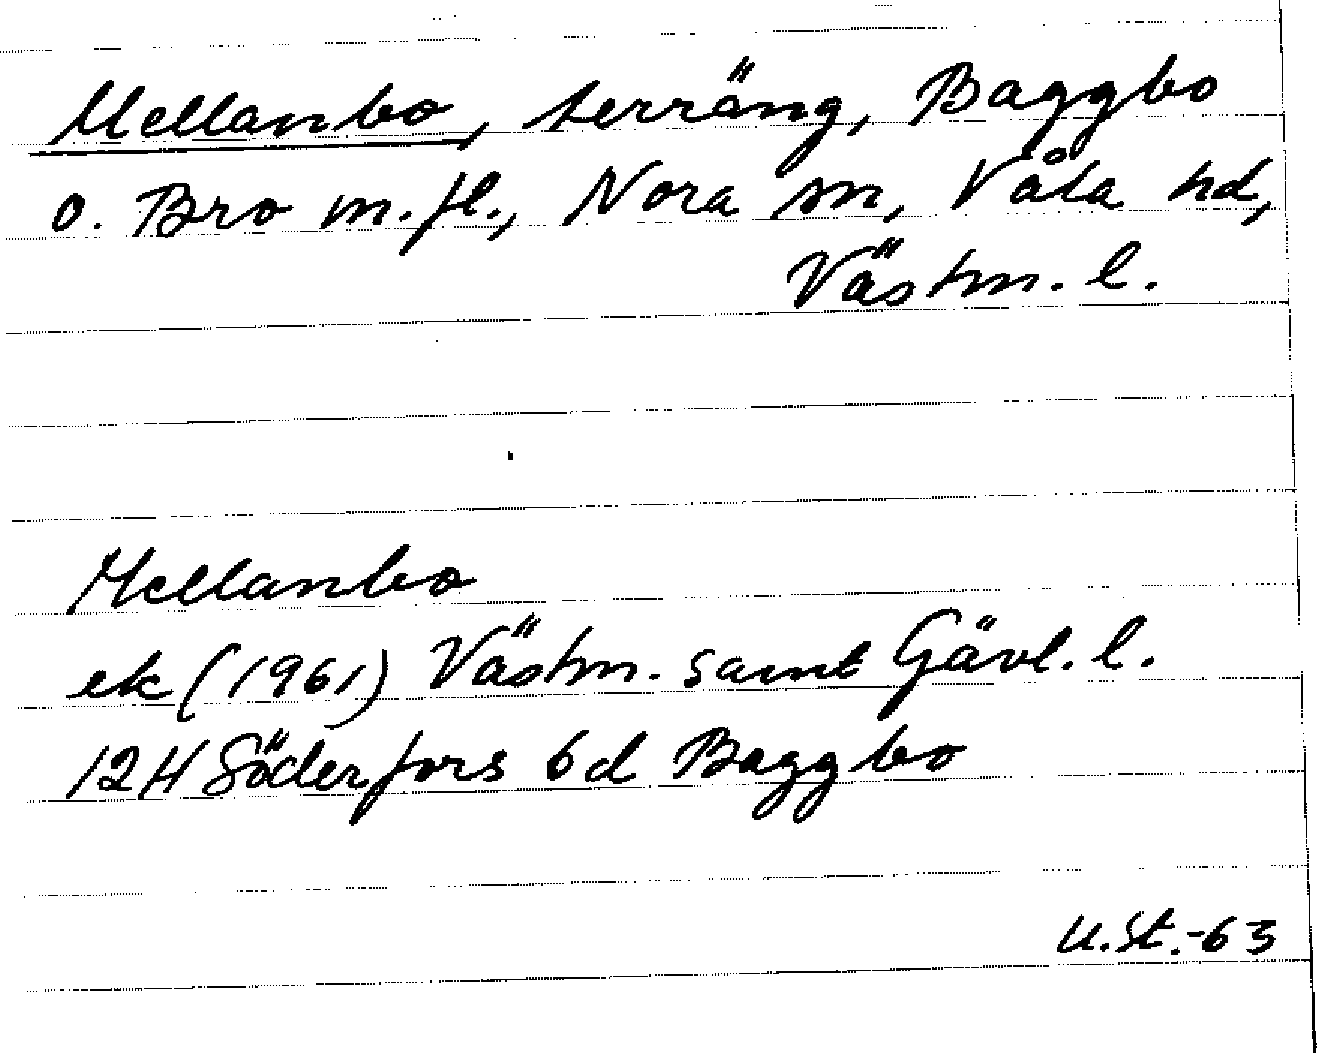 Mellanbo, terräng, Baggbo
o. Bro m.fl., Nora sn, Våla hd,
Västm. l.
Mellanbo
ek (1961) Västm. samt Gävl. l.
12H Söderfors 6d Baggbo
U.St.-63